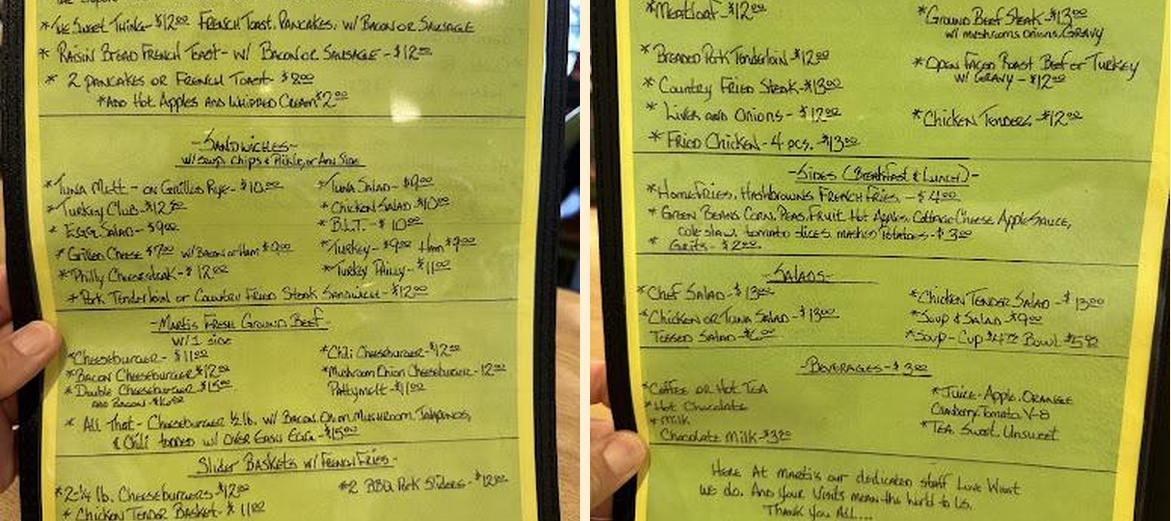 *The Sweet Thing - $12.00 French Toast, Pancakes, w/ Bacon or Sausage
*Raisin Bread French Toast - w/ Bacon or Sausage - $12.00
* 2 Pancakes or French Toast - $9.00
*Add Hot Apples and Whipped Cream $2.00
-Sandwiches-
w/ soup, chips & Pickle, or Any Side
*Tuna Melt - on Grilled Rye - $10.00
*Turkey Club - $12.50
* Egg Salad - $9.00
*Grilled Cheese $7.00 w/ Bacon or Ham $9.00
*Philly Cheesesteak - $12.00
*Tuna Salad - $9.00
*Chicken Salad $10.00
*B.L.T. - $10.00
*Turkey - $9.00 Ham $9.00
*Turkey Philly - $11.00
* Pork Tenderloin or Country Fried Steak Sandwich - $12.00
-Marti's Fresh Ground Beef-
w/ 1 side
*Cheeseburger - $11.00
*Bacon Cheeseburger $12.00
*Double Cheeseburger $15.00
Add Bacon -
*Chili Cheeseburger - $12.00
*Mushroom Onion Cheeseburger - 12.00
Pattymelt - $11.00
* All That - Cheeseburger ½ lb. w/ Bacon, Onion, Mushroom, Jalapinos,
& Chili topped w/ Over Easy Egg - $15.00
Slider Baskets w/ French Fries -
*2-¼ lb. Cheeseburgers - $12.00
* Chicken Tender Basket - $11.00
*2 BBQ Pork Sliders - $12.00
*Meatloaf - $12.00
*Breaded Pork Tenderloin - $12.00
* Country Fried Steak - $13.00
* Liver and Onions - $12.00
* Fried Chicken - 4 pcs. - $13.00
*Ground Beef Steak - $13.00
w/ mushrooms, onions, Gravy
*Open Faced Roast Beef or Turkey
w/ Gravy - $12.00
*Chicken Tenders - $12.00
-Sides (Breakfast & Lunch)-
*HomeFries, Hashbrowns, French Fries - $4.00
*Green Beans, Corn, Peas, Fruit, Hot Apples, Cottage Cheese, AppleSauce,
cole slaw, tomato slices, mashed Potatoes - $3.00
* Grits - $2.00
-Salads-
*Chef Salad - $13.00
*Chicken or Tuna Salad - $13.00
Tossed Salad -
*Chicken Tender Salad - $13.00
*Soup & Salad - $9.00
*Soup - Cup Bowl
-Beverages - $3.00
*Coffee or Hot Tea
*Hot Chocolate
* Milk
Chocolate Milk - $3.50
*Juice - Apple, Orange
Cranberry, Tomato, V-8
*Tea Sweet, Unsweet
Here At Marti's our dedicated staff Love What
we do. And Your Visits mean the world to Us.
Thank You All...